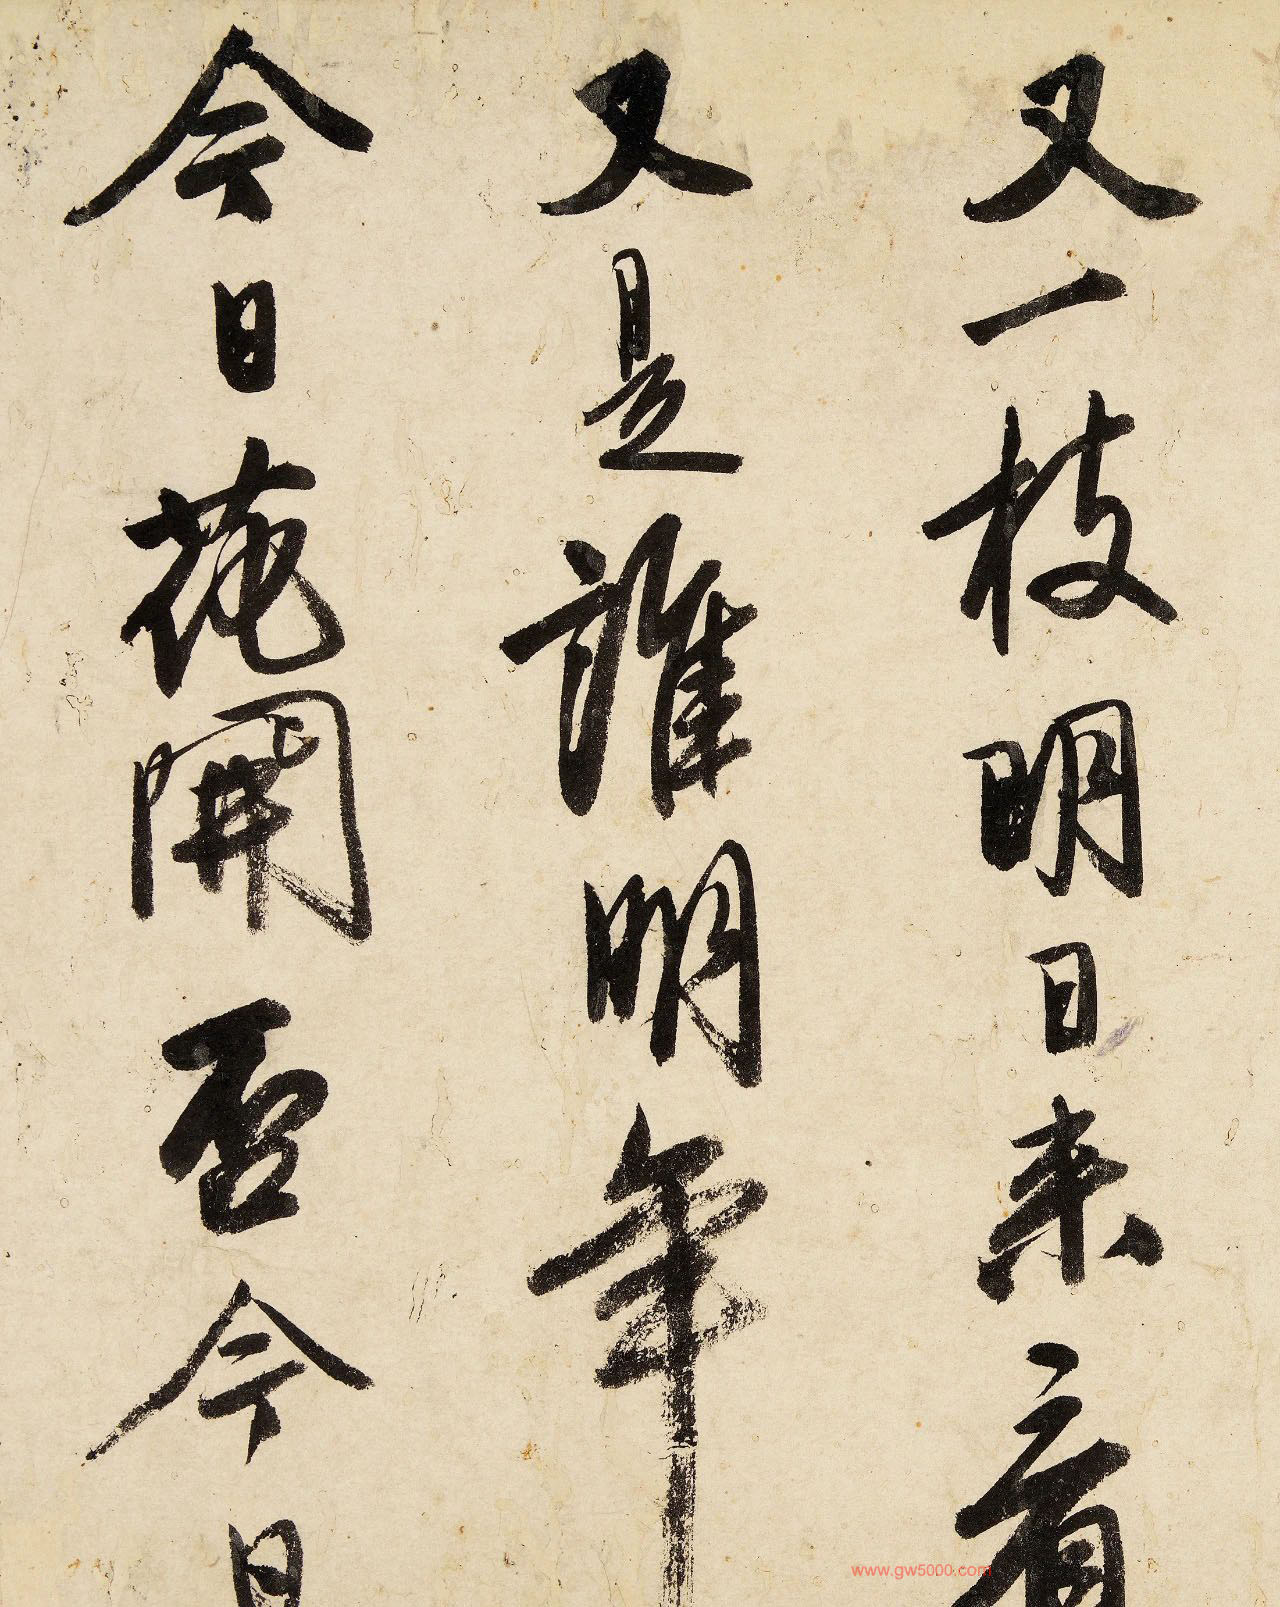 又一枝明日来看
又是誰明年
今日花開否今日
www.gw5000.com